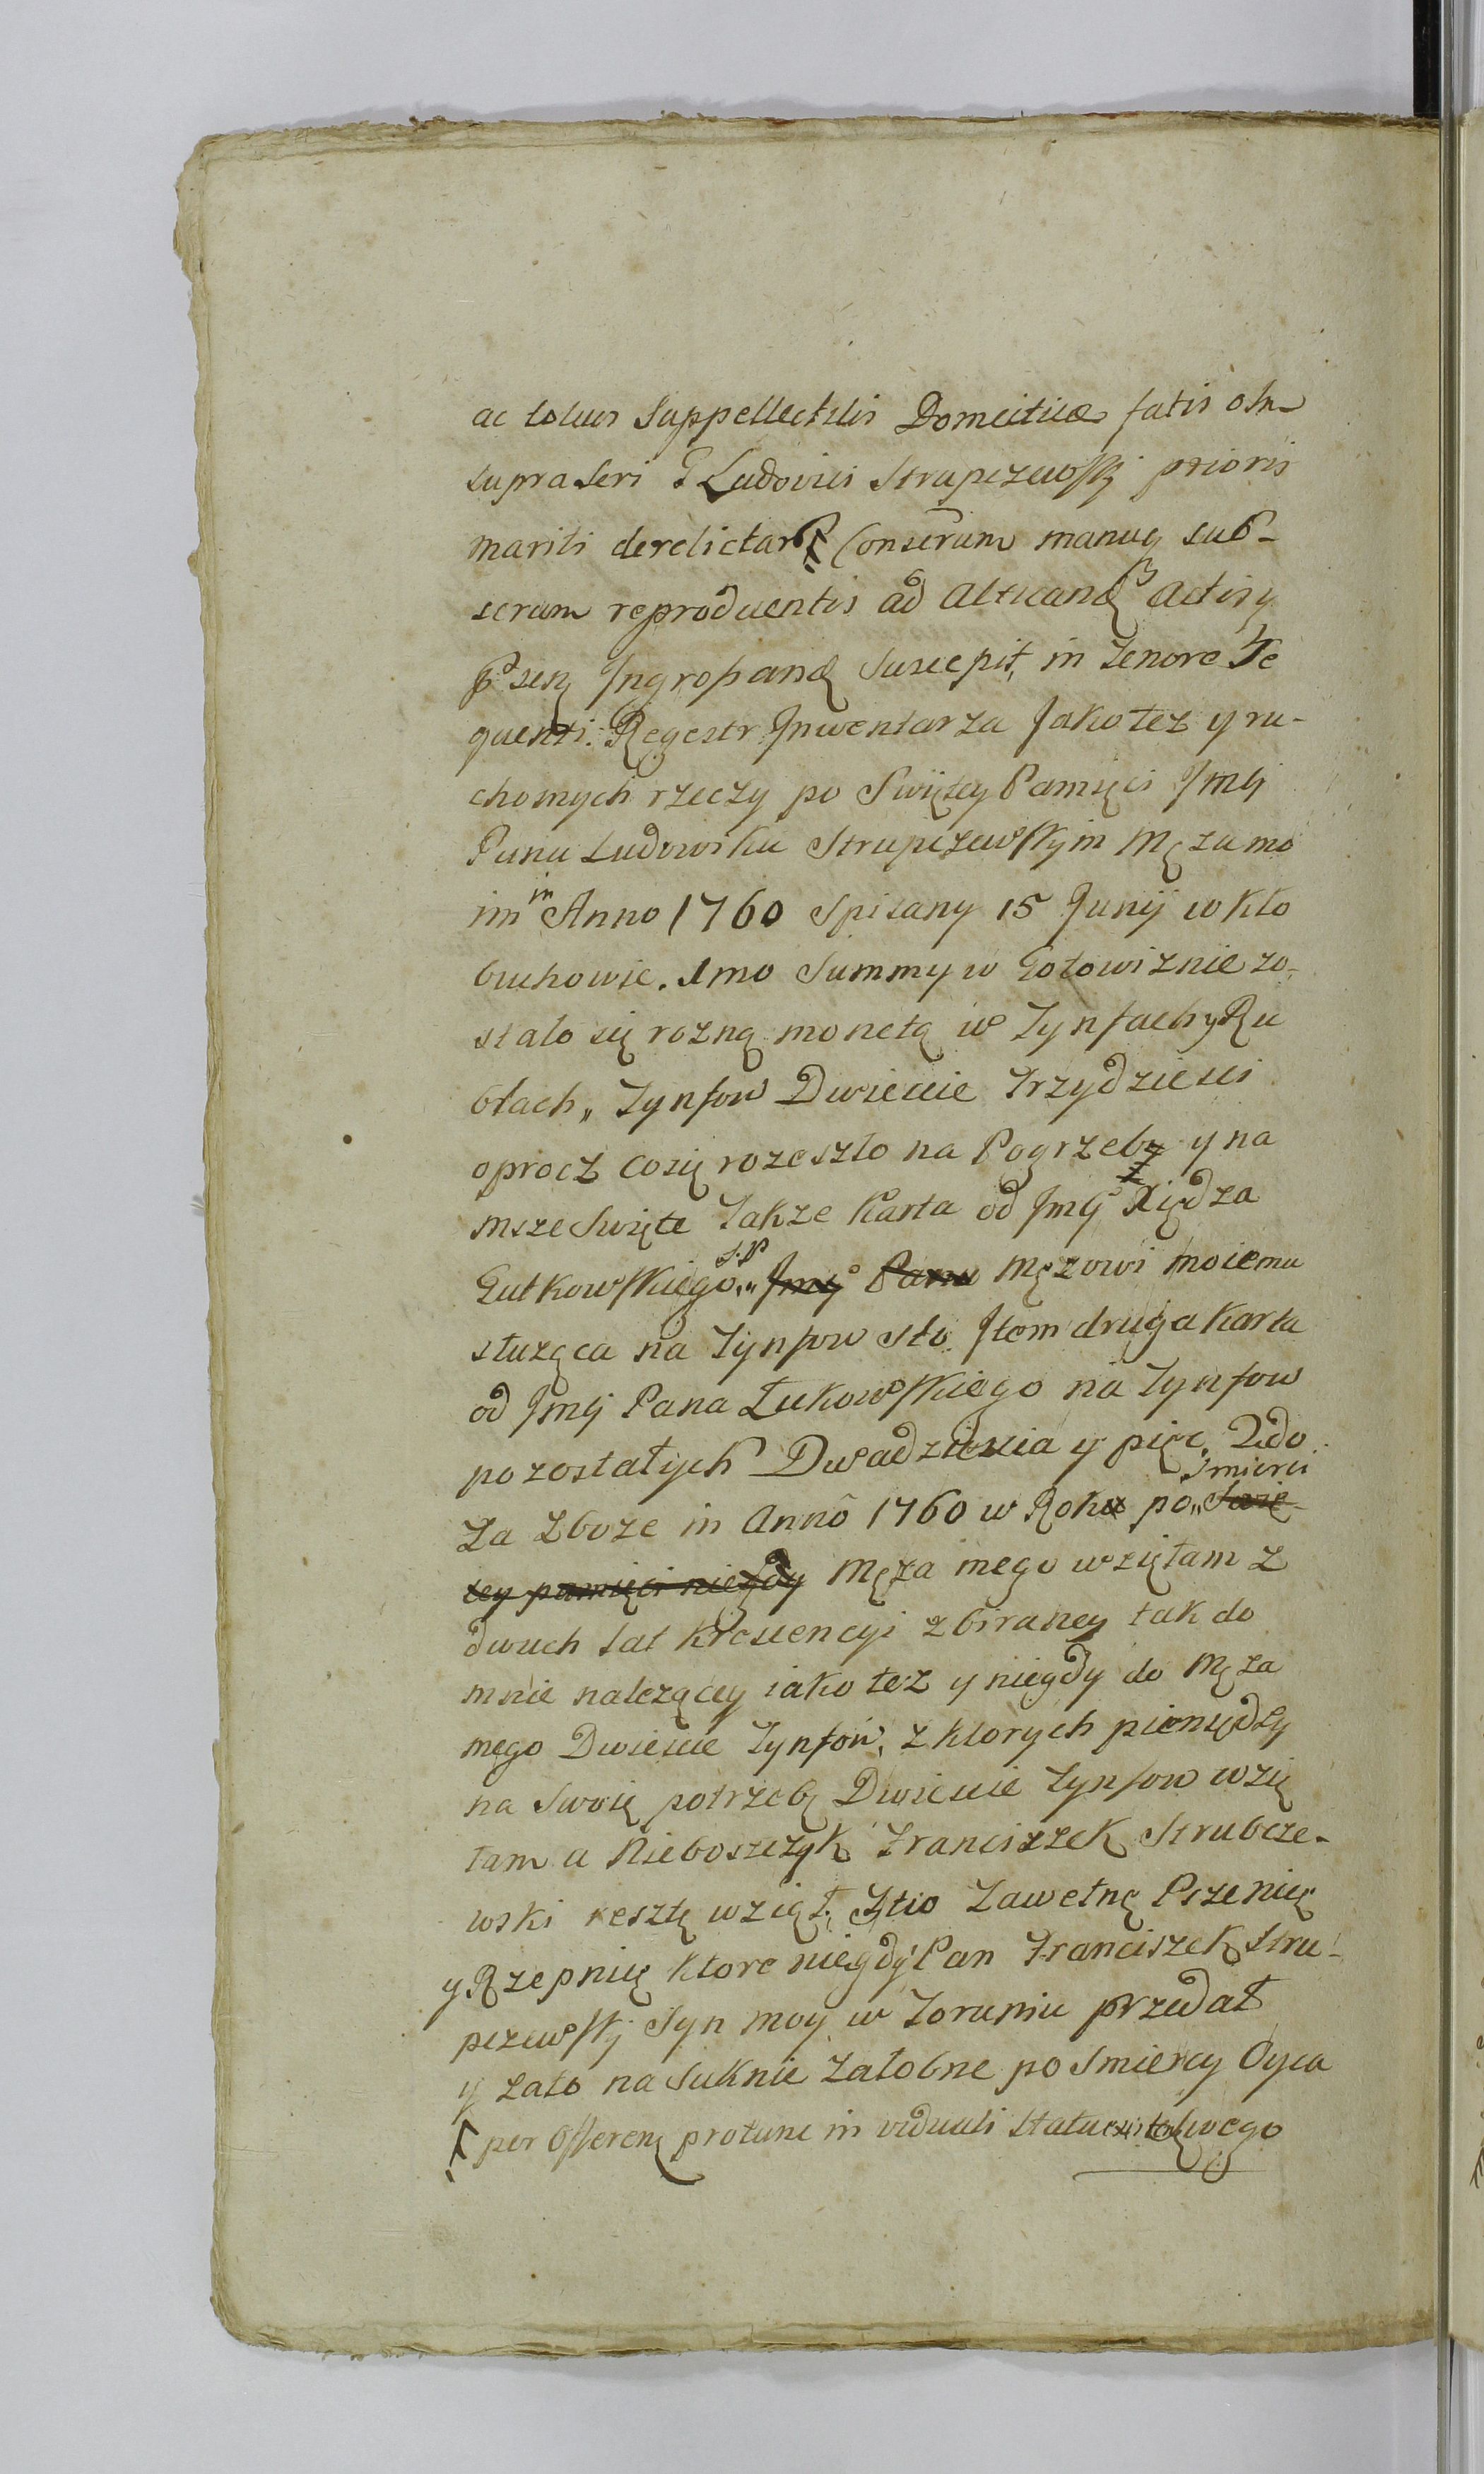 ac totius Suppellectilis Domesticæ fatis olim
supra seri G Ludovici Strupczewskj prioris
mariti derelictar Conscrum manuq sub-
scrum reproducentis ad Acticand Actisq
Psenq Ingrossand Suscepit, in Tenore Se
quenti. Regestr Inwentarza Jako tez y ru-
chomych rzeczy po Swiętey Pamięci Jmći
Panu Ludowiku Strupczewskim Męzu mo
im in Anno 1760 Spisany 15 Junij w Kło
buchowie. 1mo Summy w Gotowiznie zo-
stało się rozną monetą w Tynfach y Ru
błach „ Tynfow Dwiescie Trzydziesci
oprocz co się rozeszło na Pogrzeby y na
msze Swięte Takze Karta od Jmć Xiędza
Gutkowskiego „ S.P Jmć Panu Męzowi moiemu
słuząca na Tynfow sto. Item druga Karta
od Jmći Pana Łukowskiego na Tynfow
pozostałych Dwadziescia y pięc, 2do
Za Zboze in Anno 1760 w Roku po „ Smierci Swię-
tey pamięci niegdy Męza mego wzięłam z
dwuch lat Krescencyi zbiraney tak do
mnie nalezącey iako tez y niegdy do Męza
mego Dwiescie Tynfow, z ktorych pieniędzy
na Swoię potrzebę Dwiescie Tynfow wzię
łam a Nieboszczyk Franciszek Strubcze-
wski resztę wziął, 3tio Za wełnę Pszenicę
y Rzepnicę ktore niegdy Pan Franciszek Stru-
pczewskj Syn moy w Toruniu przedał
y zato na Suknie załobne po Smiercy Oyca
per Offerenq protunc in viduali statu existen Swego